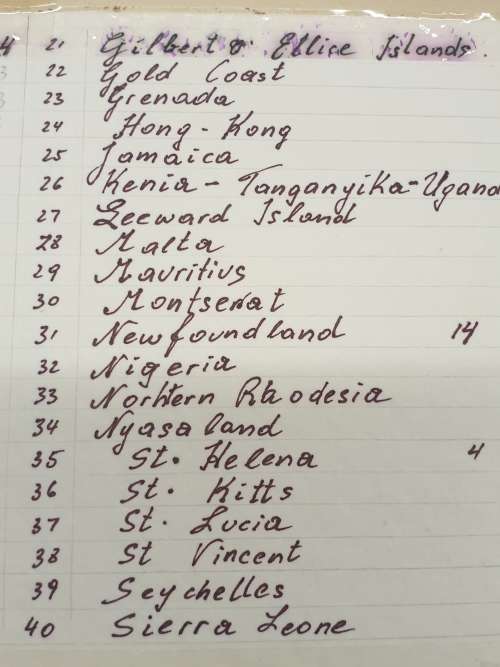 4 21 Gilbert & Ellice Islands.
22 Gold Coast
23 Grenada
24 Hong-Kong
25 Jamaica
26 Kenia - Tanganyika-Ugand
27 Leeward Island
28 Malta
29 Mauritius
30 Montserrat
31 Newfoundland 14
32 Nigeria
33 Northern Rhodesia
34 Nyasaland
35 St. Helena 4
36 St. Kitts
37 St. Lucia
38 St Vincent
39 Seychelles
40 Sierra Leone